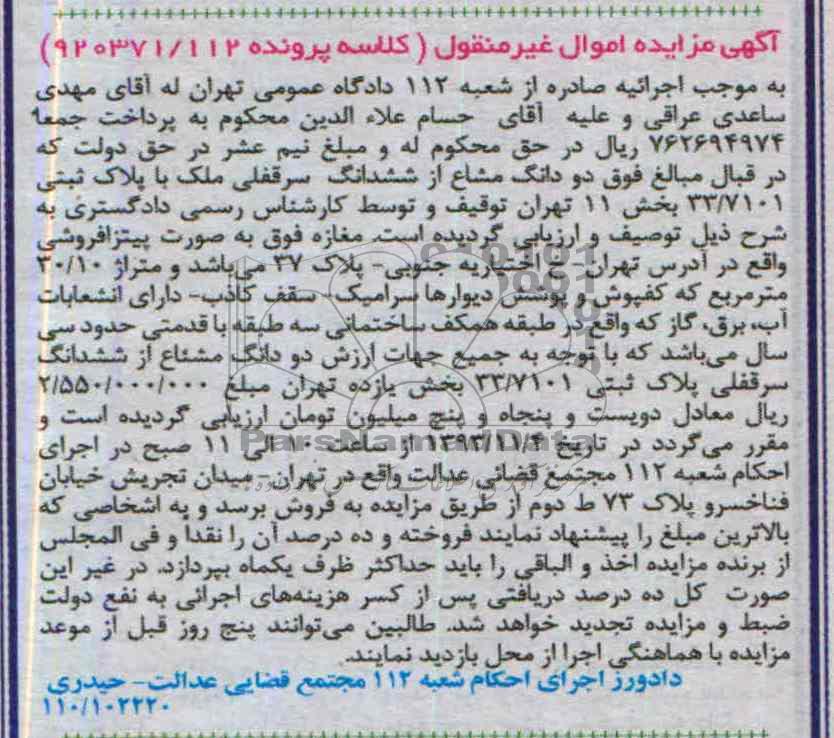 آگهی مزایده اموال غیرمنقول ( کلاسه پرونده ۹۲۰۳۷۱/۱۱۲)
به موجب اجرائیه صادره از شعبه ۱۱۲ دادگاه عمومی تهران له آقای مهدی
ساعدی عراقی و علیه آقای حسام علاء الدین محکوم به پرداخت جمعا
۷۶۲۶۹۴۹۷۴ ریال در حق محکوم له و مبلغ نیم عشر در حق دولت که
در قبال مبالغ فوق دو دانگ مشاع از ششدانگ سرقفلی ملک با پلاک ثبتی
۳۳/۷۱۰۱ بخش ۱۱ تهران توقیف و توسط کارشناس رسمی دادگستری به
شرح ذیل توصیف و ارزیابی گردیده است. مغازه فوق به صورت پیتزافروشی
واقع در آدرس تهران- خ اختیاریه جنوبی- پلاک ۳۷ می‌باشد و متراژ ۳۰/۱۰
مترمربع که کفپوش و پوشش دیوارها سرامیک- سقف کاذب- دارای انشعابات
آب، برق، گاز که واقع در طبقه همکف ساختمانی سه طبقه با قدمتی حدود سی
سال می‌باشد که با توجه به جمیع جهات ارزش دو دانگ مشئاع از ششدانگ
سرقفلی پلاک ثبتی ۳۳/۷۱۰۱ بخش یازده تهران مبلغ ۲/۵۵۰/۰۰۰/۰۰۰
ریال معادل دویست و پنجاه و پنج میلیون تومان ارزیابی گردیده است و
مقرر می‌گردد در تاریخ ۱۳۹۳/۱۱/۴ از ساعت ۱۰ الی ۱۱ صبح در اجرای
احکام شعبه ۱۱۲ مجتمع قضائی عدالت واقع در تهران- میدان تجریش خیابان
فناخسرو پلاک ۷۳ ط دوم از طریق مزایده به فروش برسد و به اشخاصی که
بالاترین مبلغ را پیشنهاد نمایند فروخته و ده درصد آن را نقدا و فی المجلس
از برنده مزایده اخذ و الباقی را باید حداکثر ظرف یکماه بپردازد. در غیر این
صورت کل ده درصد دریافتی پس از کسر هزینه‌های اجرائی به نفع دولت
ضبط و مزایده تجدید خواهد شد. طالبین می‌توانند پنج روز قبل از موعد
مزایده با هماهنگی اجرا از محل بازدید نمایند.
دادورز اجرای احکام شعبه ۱۱۲ مجتمع قضایی عدالت- حیدری
۱۱۰/۱۰۲۲۲۰
ParsNamadData